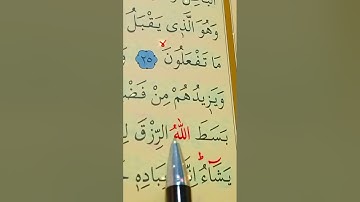 وَهُوَ الَّذ۪ي يَقْبَلُ
مَا تَفْعَلُونَۙ ﴿٢٥﴾
وَيَز۪يدُهُمْ مِنْ فَضْ
بَسَطَ اللّٰهُ الرِّزْقَ لِ
يَشَٓاءُۜ اِنَّهُ بِعِبَادِه۪